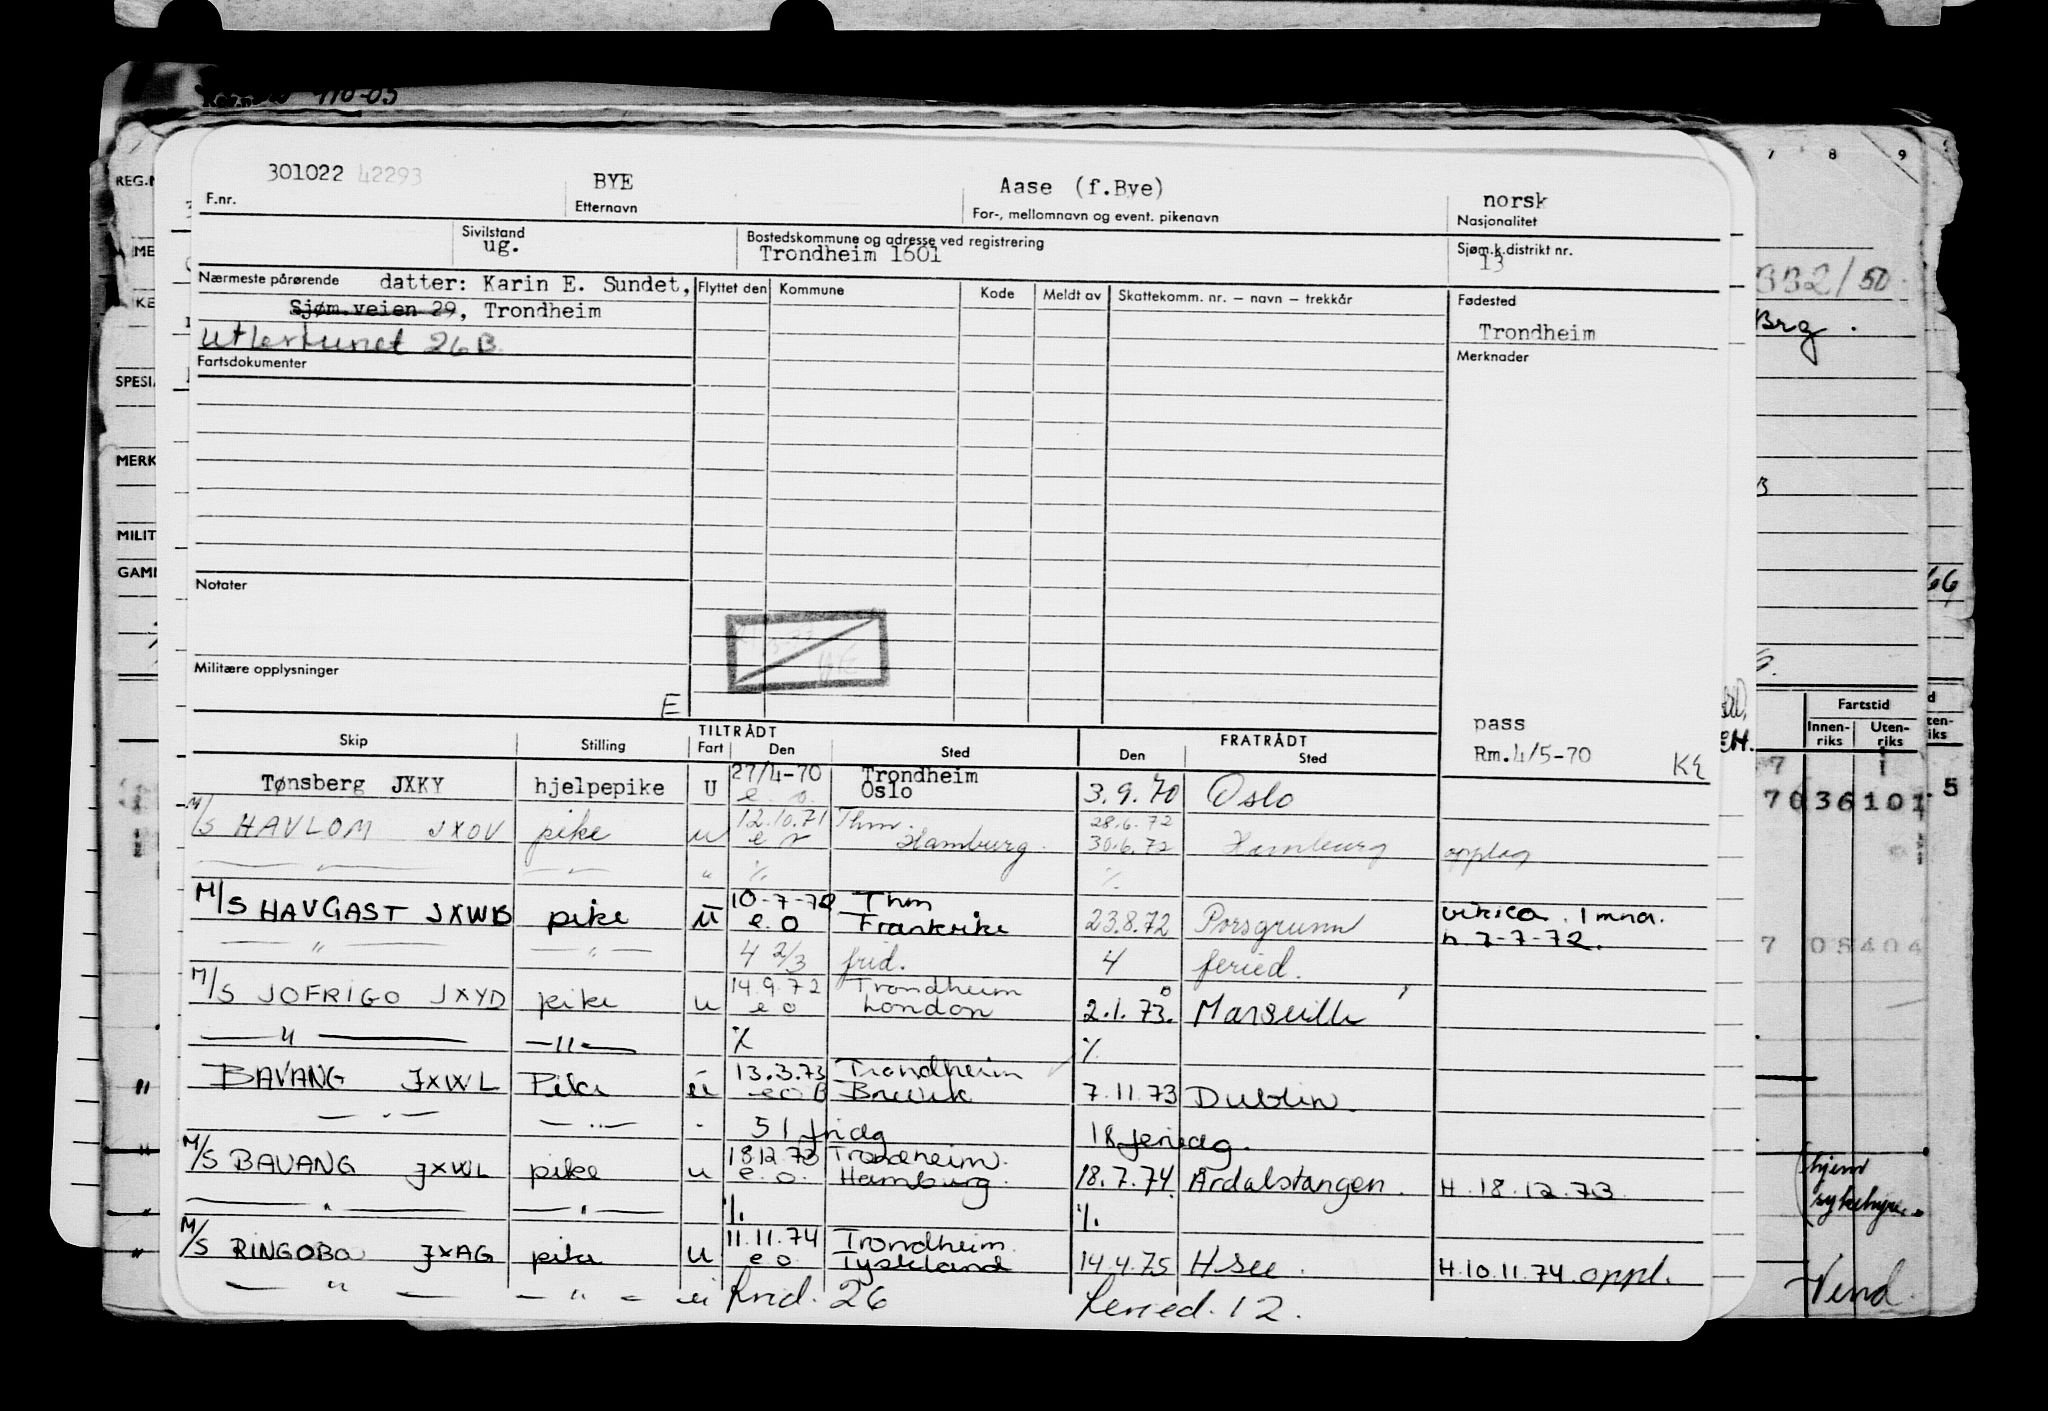 301022 42293 BYE Aase (f.Bye) norsk
F.nr. Etternavn For-, mellomnavn og event. pikenavn Nasjonalitet
Sivilstand Bostedskommune og adresse ved registrering Sjøm.k.distrikt nr.
ug. Trondheim 1601 13
Nærmeste pårørende datter: Karin E. Sundet, Flyttet den Kommune Kode Meldt av Skattekomm. nr. – navn – trekkår Fødested
Sjøm.veien 29, Trondheim Trondheim
26B.
Fartsdokumenter Merknader
Notater
Militære opplysninger
E
pass
Rm.4/5-70 KE
TILTRÅDT FRATRÅDT
Skip Stilling Fart Den Sted Den Sted
Tønsberg JXKY hjelpepike U 27/4-70 Trondheim
e. o. Oslo 3.9.70 Oslo
M/S HAVLOM JXOV pike u 12.10.71 Thm. 28.6.72
Hamburg. 30.6.72 Hamburg opplag
— " — — " — " % %
M/S HAVGAST JXWB pike u 10-7-72 Thm
e.o Frankrike 23.8.72 Porsgrunn 1 mnd.
7-7-72.
— " — — " — 4 2/3 frid. 4 feried.
M/S JOFRIGO JXYD pike u 14.9.72 Trondheim
e o London 2.1.73. Marseille
— " — — " — % %
BAVANG JXWL Pike u 13.3.73 Trondheim
Brevik 7.11.73 Dublin.
— " — — " — 51 fridg 18 feriedg.
M/S BAVANG JXWL pike u 18.12.73 Trondheim.
e.o. Hamburg. 18.7.74. Årdalstangen. H.18.12.73
— " — — " — %. %.
M/S RINGOBO JXAG pike u 11.11.74 Trondheim.
e o. Tyskland 14.4.75 H.see. H.10.11.74 oppl.
— " — — " — u frid. 26 feried. 12.
110-05
REG.N
ME
KE
SPESI
MERK
MILIT
GAMI
7 8 9
332/50
Brg.
66
Fartstid
Innen-riks Uten-riks
7 1
70 36 101 5
7 05 404
hjem
sykehyre.
Vend.